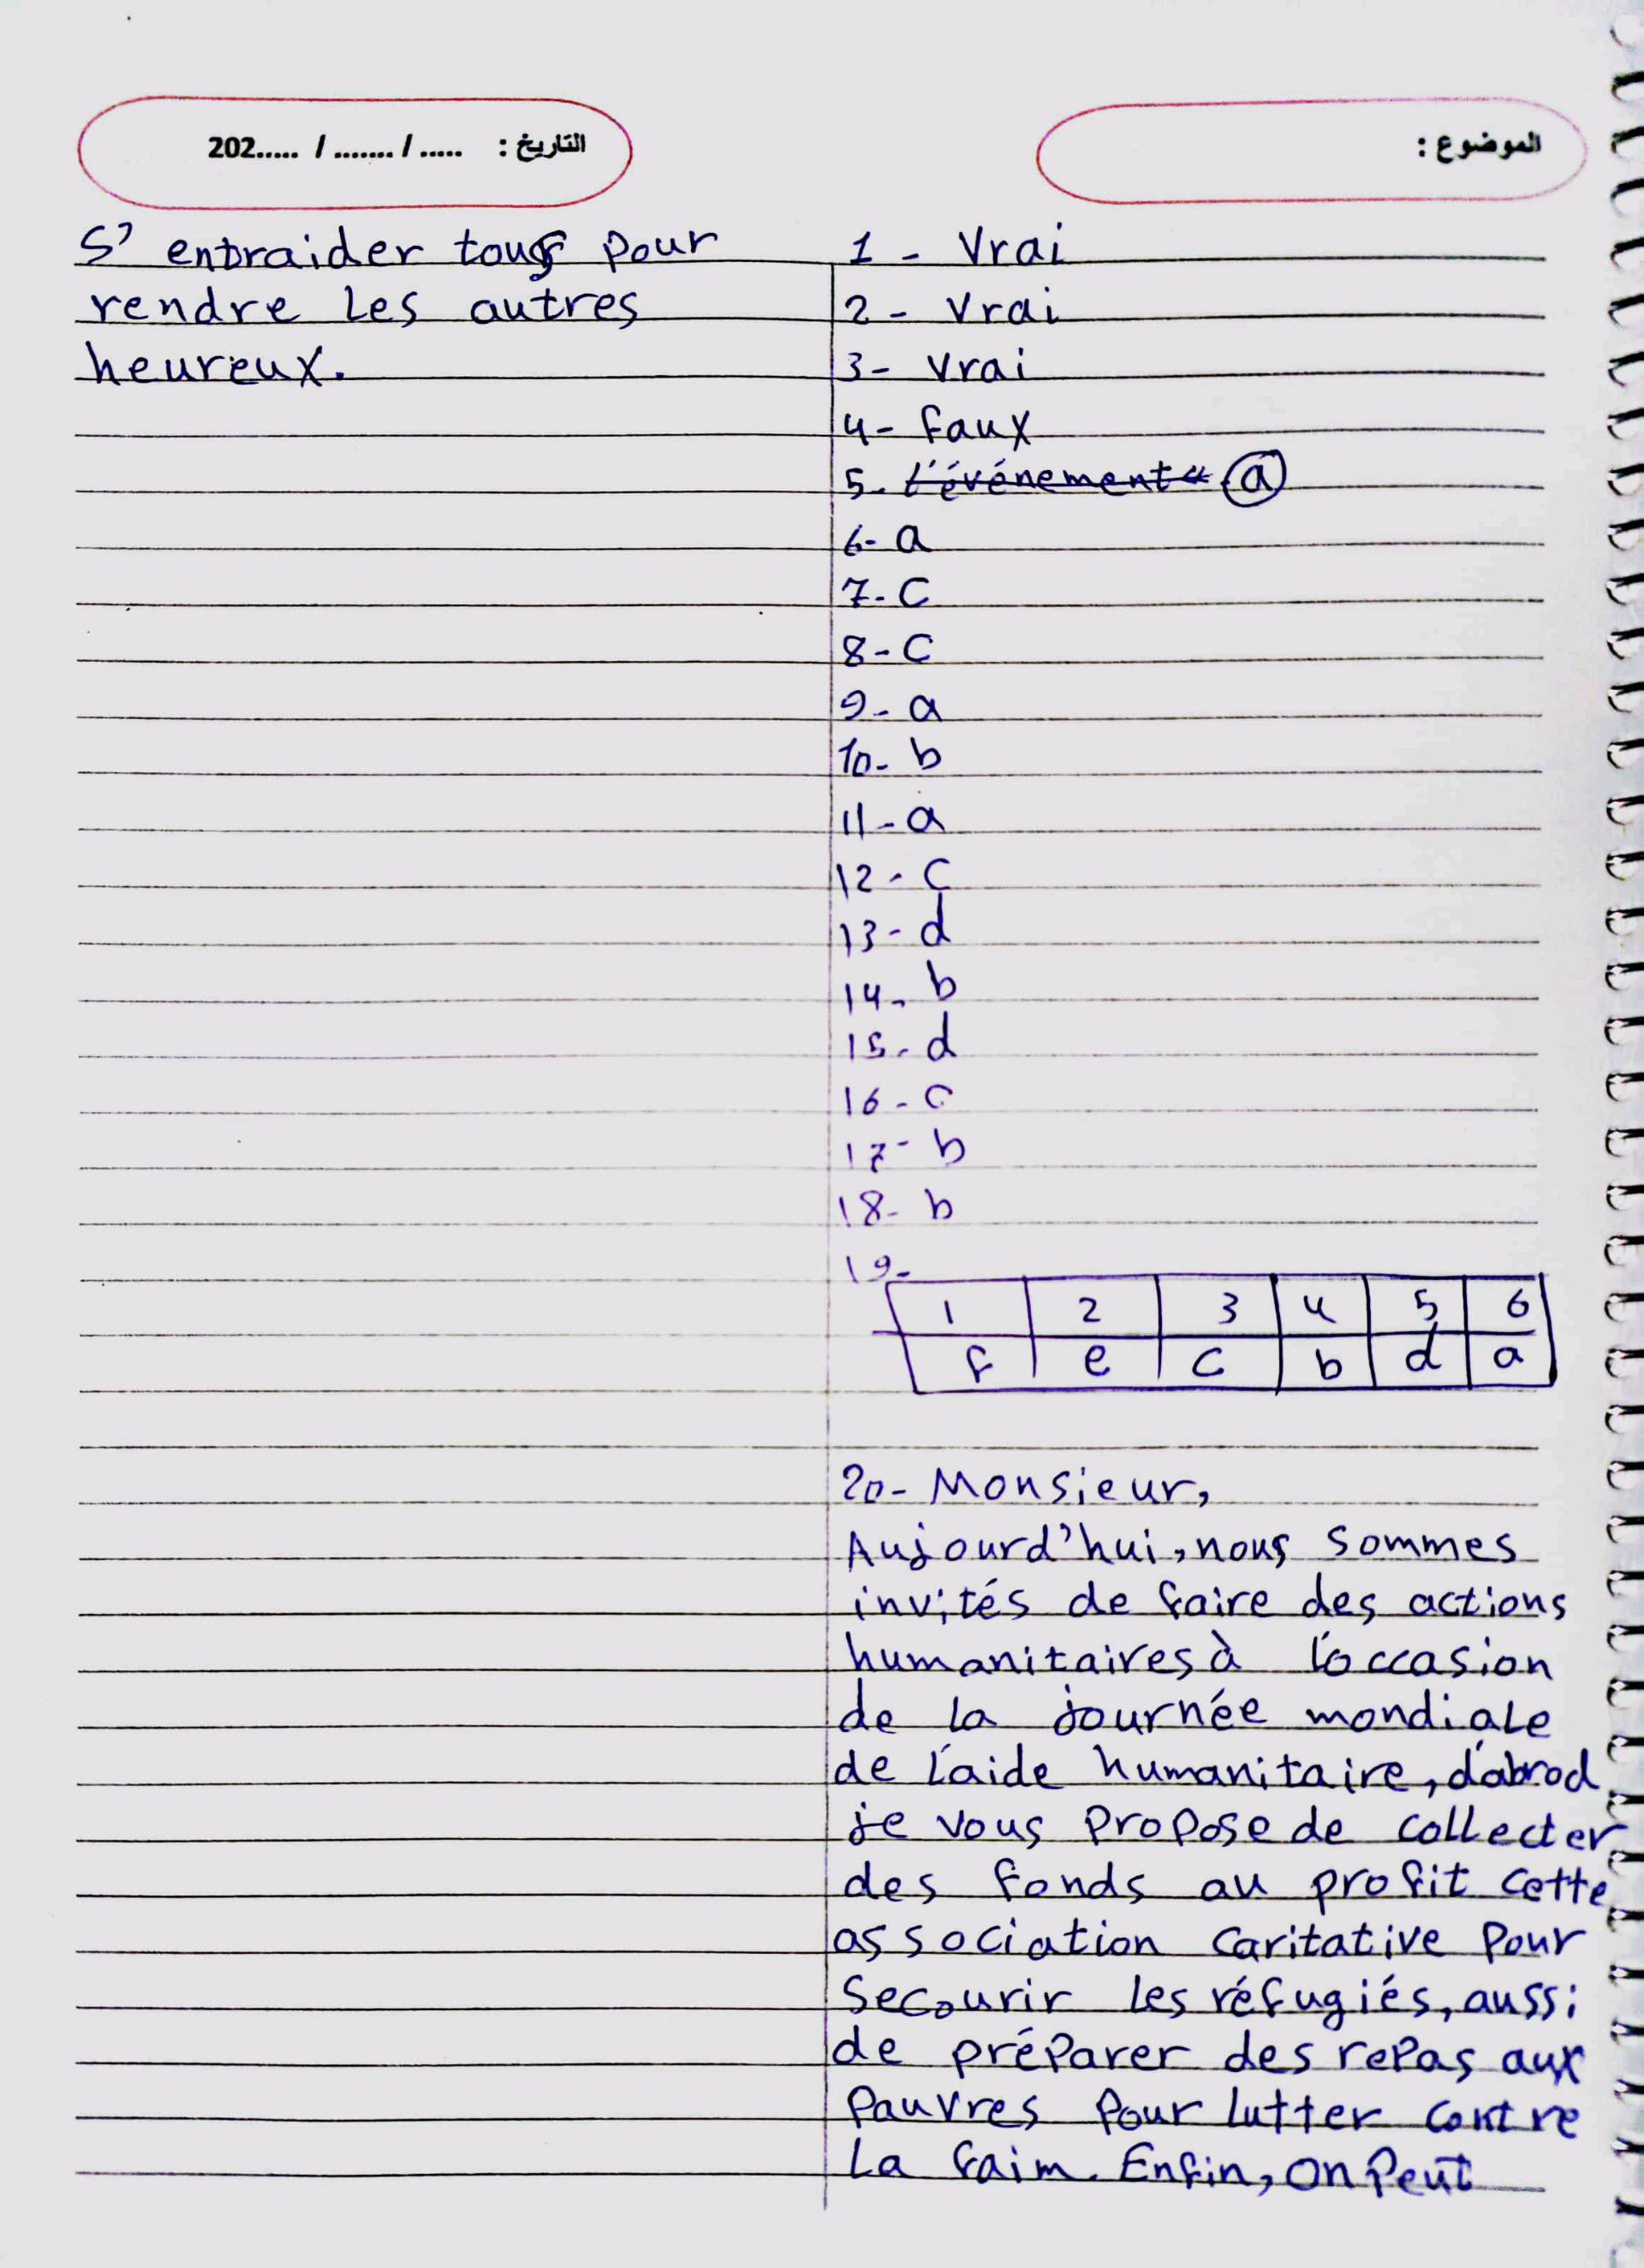 الموضوع :
التاريخ : ..... / ....... / .....202
1 - Vrai
2 - Vrai
3 - Vrai
4 - Faux
5 - l'événement" a
6 - a
7 - C
8 - C
9 - a
10 - b
11 - a
12 - C
13 - d
14 - b
15 - d
16 - C
17 - b
18 - b
19 -
1 2 3 4 5 6
F e C b d a
20 - Monsieur,
Aujourd'hui, nous sommes
invités de faire des actions
humanitaires à l'occasion
de la journée mondiale
de l'aide humanitaire, d'abrod
je vous propose de collecter
des fonds au profit cette
association caritative pour
Secourir les réfugiés, aussi
de préparer des repas aux
pauvres pour lutter contre
la faim. Enfin, on peut
S' entraider tous pour
rendre les autres
heureux.